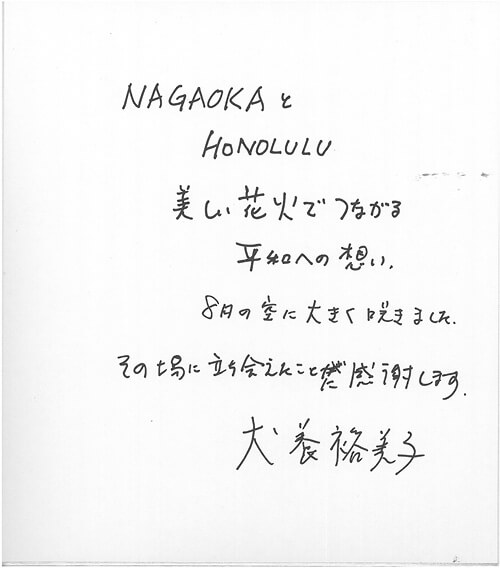 NAGAOKAと
HONOLULU
美しい花火でつながる
平和への想い.
8月の空に大きく咲きました.
その場に立ち会えたこと 感謝します.
犬養裕美子